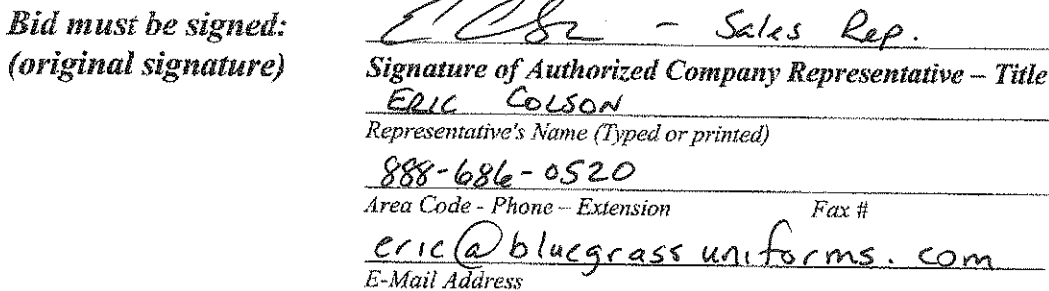 Bid must be signed: – Sales Rep.
(original signature) Signature of Authorized Company Representative – Title
ERIC COLSON
Representative's Name (Typed or printed)
888-686-0520
Area Code - Phone – Extension Fax #
eric@bluegrassuniforms.com
E-Mail Address